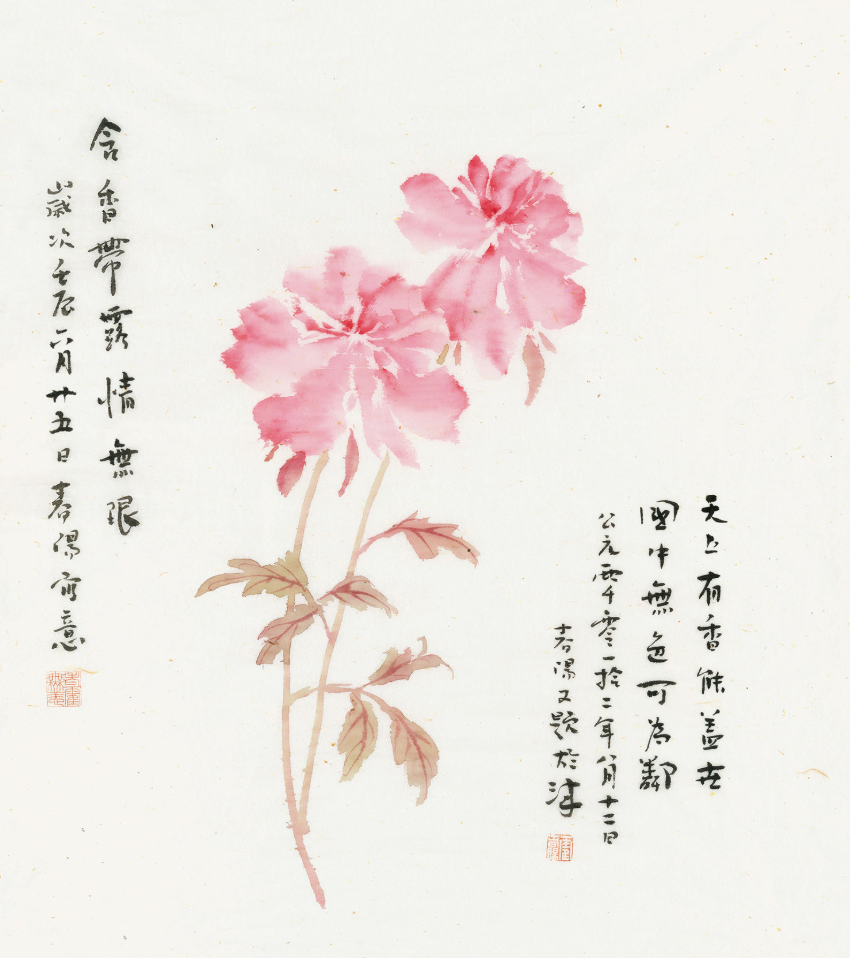 天上有香能蓋世
國中無色可為鄰
公元兩千零一拾二年八月十二日
春陽又題於津
含香帶露情無限
歲次壬辰六月廿五日春陽寫意